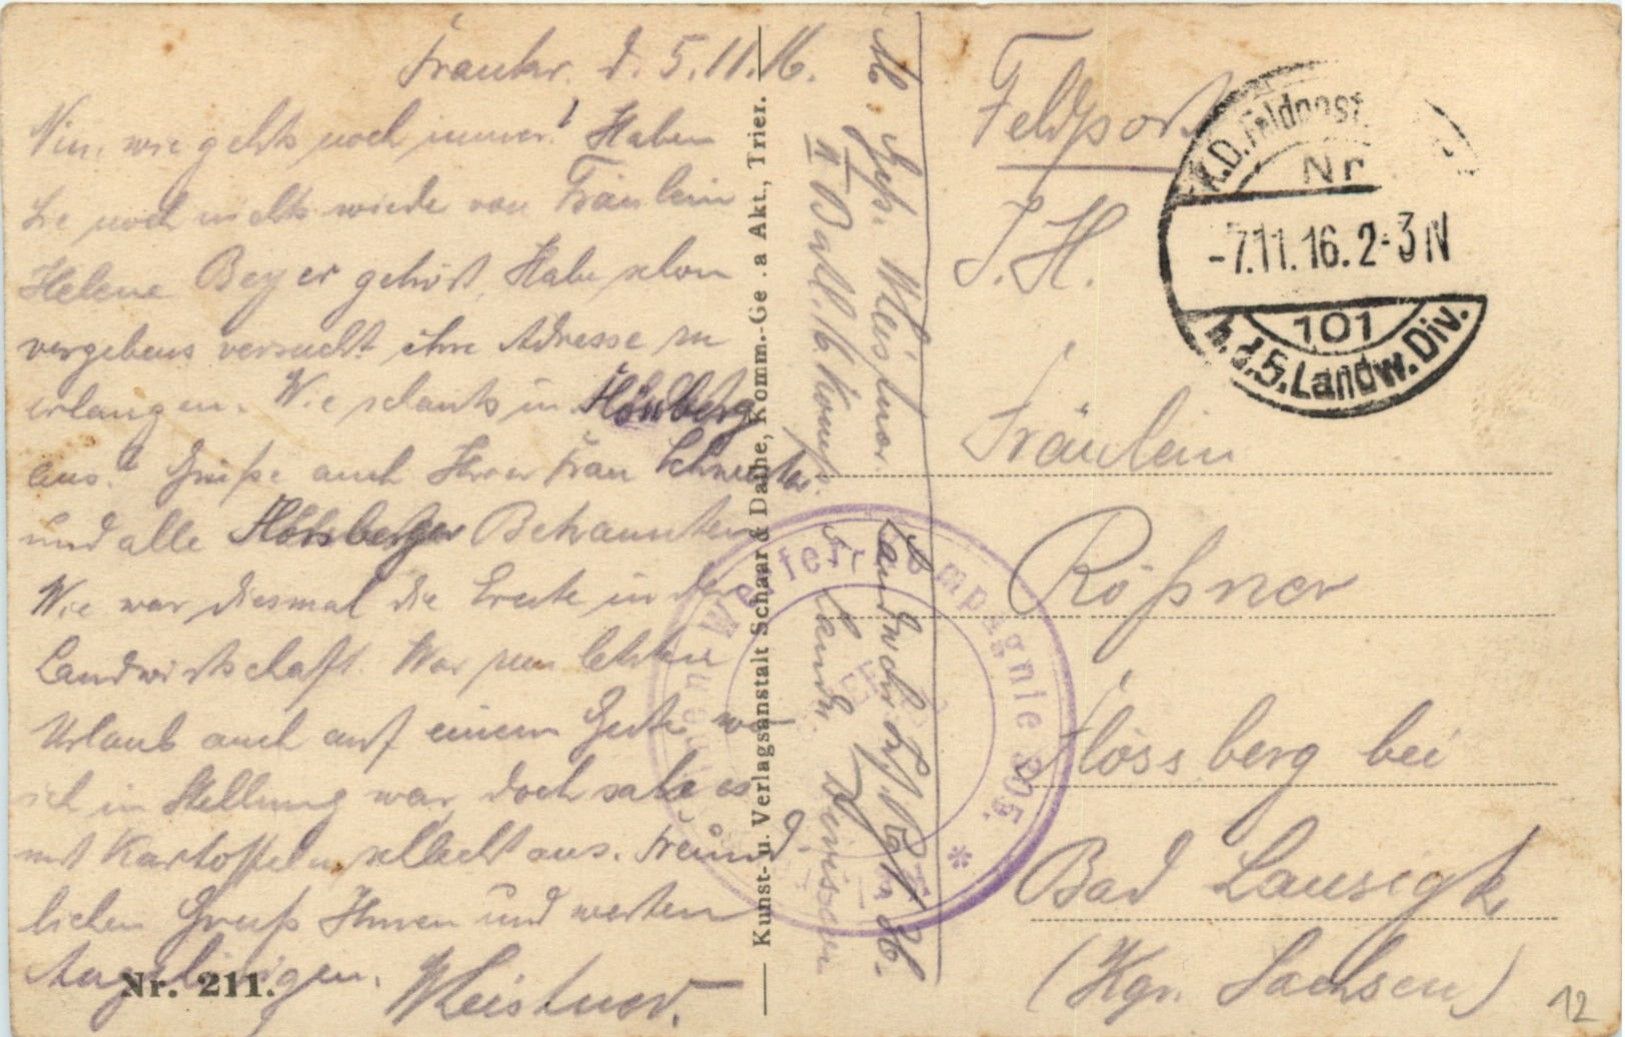 Frankr. d. 5.11.16.
Nun, wie gehts noch immer? Haben
Sie noch nichts wieder von Fräulein
Helene Beyer gehört, Habe schon
vergebens versucht ihre Adresse zu
erlangen. Wie schauts in Flössberg
aus? Grüße auch Ihrer Frau Schwester
und alle Flössberger Bekannten
Wie war diesmal die Ernte in der
Landwirtschaft. War zum letzten
Urlaub auch auf einem Gute wo
ich in Stellung war, doch sahe es
mit Kartoffeln schlecht aus. Freund-
lichen Gruß Ihnen und werten
Angehörigen.
Nr. 211.
Kunst- u. Verlagsanstalt Schaar & Dathe, Komm.-Ges. a Akt., Trier.
II Batl. 16. Komp.
5 Landw. Division
Feldpost
S. H.
K.D. Feldpost
Nr
-7.11.16. 2-3 N
101
b.d.5.Landw.Div.
Fräulein
Rößner
Flössberg bei
Bad Lausigk
(Kgr. Sachsen)
12